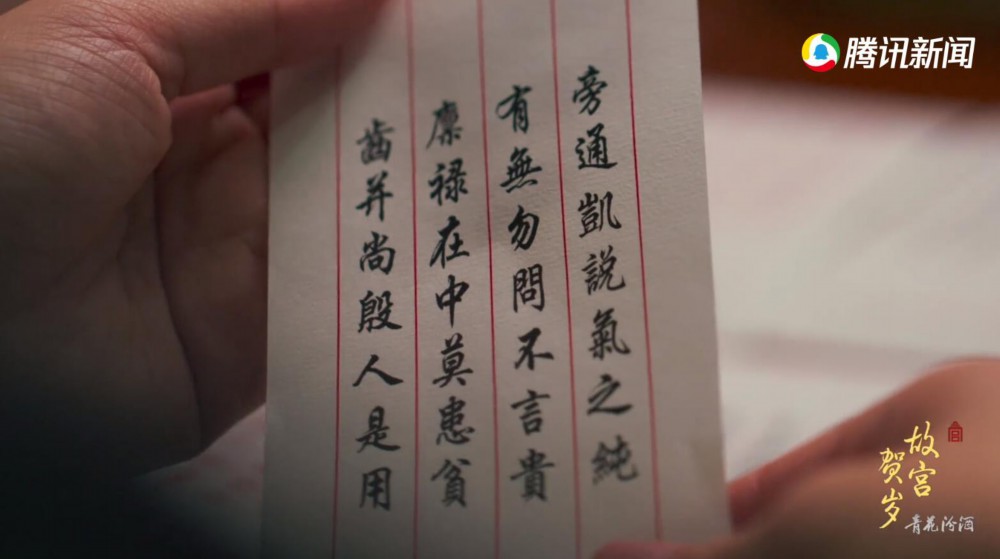 腾讯新闻
旁通凱説氣之純
有無勿問不言貴
麇禄在中莫患貧
齒并尚殷人是用
故宫
贺岁
青花汾酒